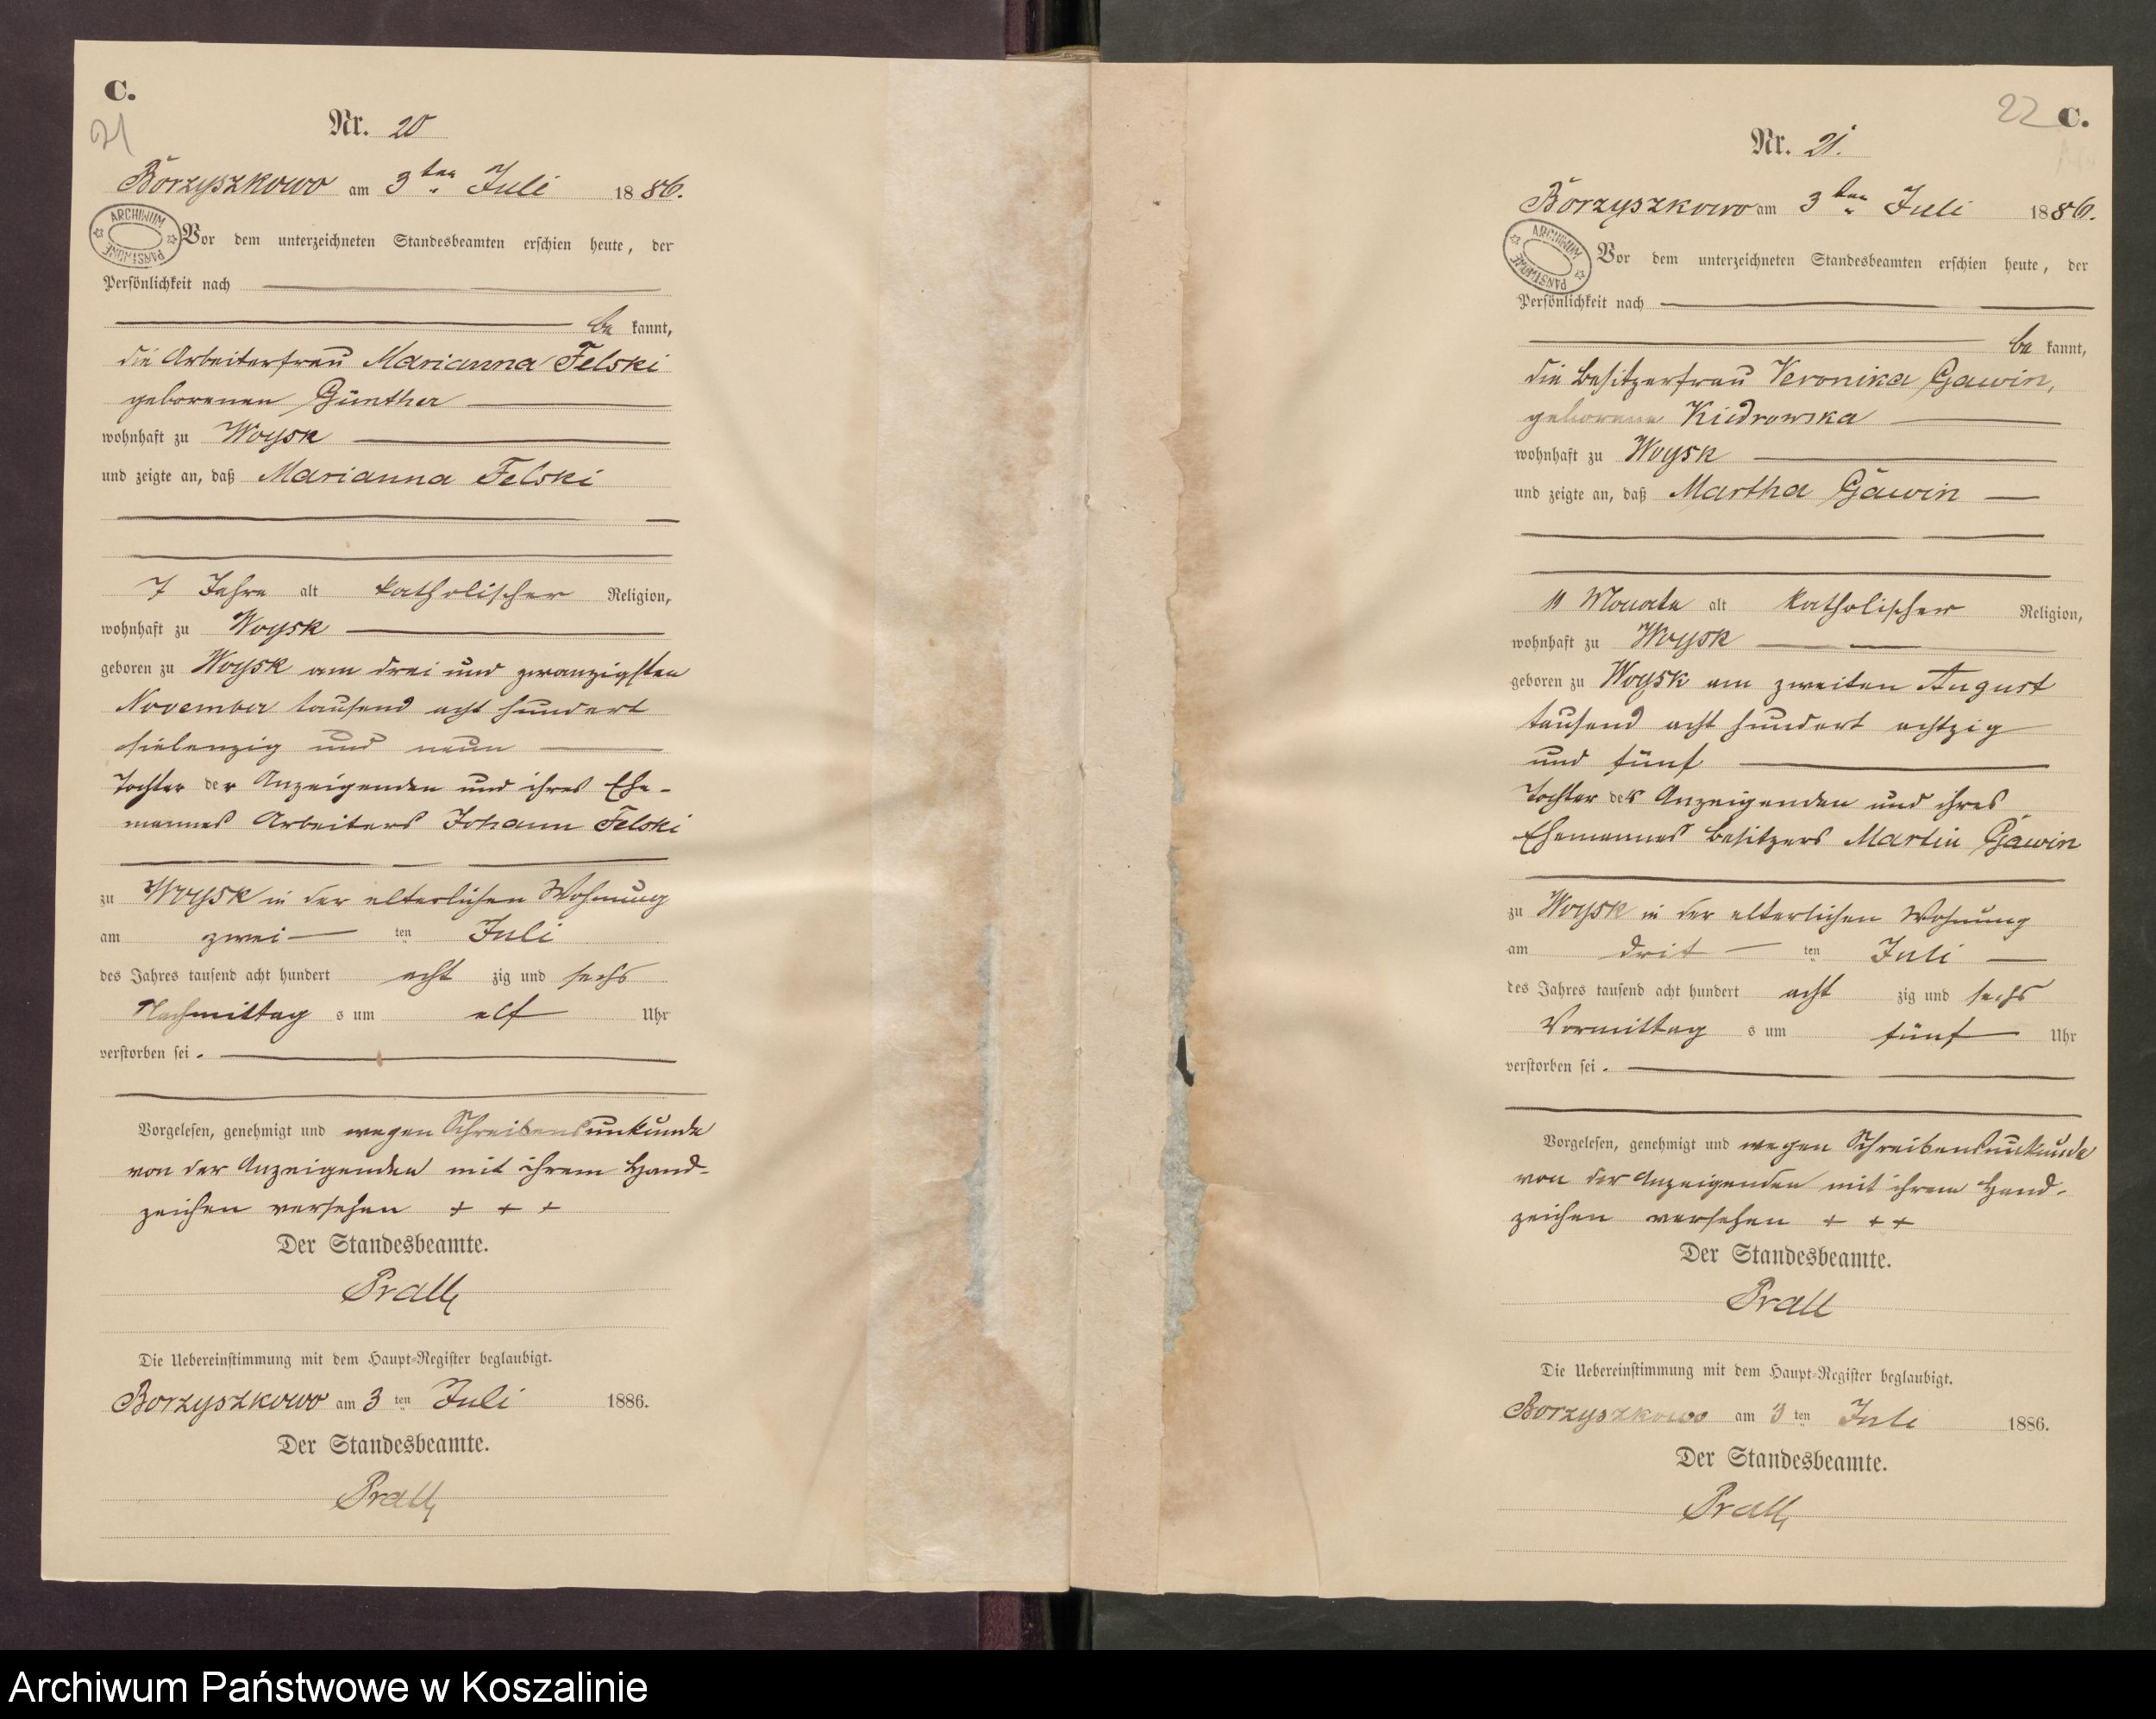 C.
21
Nr. 20
Borzyszkowo am 3ten Juli 1886.
ARCHIWUM PAŃSTWOWE
Vor dem unterzeichneten Standesbeamten erschien heute, der
Persönlichkeit nach
be kannt,
die Arbeiterfrau Marianna Felski
geborenen Günther
wohnhaft zu Woysk
und zeigte an, daß Marianna Felski
7 Jahre alt katholischer Religion,
wohnhaft zu Woysk
geboren zu Woysk am drei und zwanzigsten
November tausend acht hundert
siebenzig und neun
Tochter der Anzeigenden und ihres Ehe-
mannes Arbeiters Johann Felski
zu Woysk in der elterlichen Wohnung
am zwei ten Juli
des Jahres tausend acht hundert acht zig und sechs
Nachmittag s um elf Uhr
verstorben sei.
Vorgelesen, genehmigt und wegen Schreibensunkunde
von der Anzeigenden mit ihrem Hand-
zeichen versehen + + +
Der Standesbeamte.
Prall
Die Uebereinstimmung mit dem Haupt-Register beglaubigt.
Borzyszkowo am 3 ten Juli 1886.
Der Standesbeamte.
Prall
22 C.
Nr. 21.
Borzyszkowo am 3ten Juli 1886.
ARCHIWUM PAŃSTWOWE
Vor dem unterzeichneten Standesbeamten erschien heute, der
Persönlichkeit nach
be kannt,
die Besitzerfrau Veronika Gawin,
geborene Kiedrowska
wohnhaft zu Woysk
und zeigte an, daß Martha Gawin
11 Monate alt katholischer Religion,
wohnhaft zu Woysk
geboren zu Woysk am zweiten August
tausend acht hundert achtzig
und fünf
Tochter der Anzeigenden und ihres
Ehemannes Besitzers Martin Gawin
zu Woysk in der elterlichen Wohnung
am drit ten Juli
des Jahres tausend acht hundert acht zig und sechs
Vormittag s um fünf Uhr
verstorben sei.
Vorgelesen, genehmigt und wegen Schreibensunkunde
von der Anzeigenden mit ihrem Hand-
zeichen versehen + + +
Der Standesbeamte.
Prall
Die Uebereinstimmung mit dem Haupt-Register beglaubigt.
Borzyszkowo am 3 ten Juli 1886.
Der Standesbeamte.
Prall
Archiwum Państwowe w Koszalinie